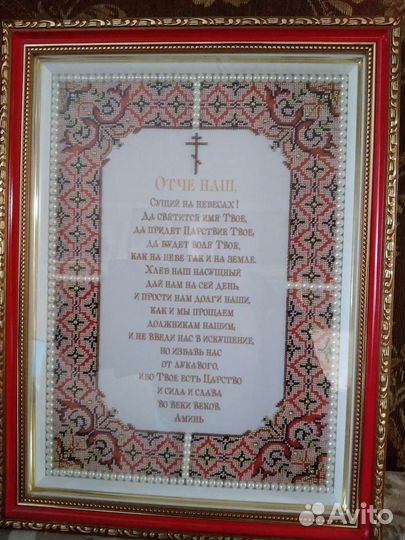 Отче наш,
Сущий на небесах!
Да святится имя Твое,
да придет Царствие Твое,
да будет воля Твоя,
как на небе так и на земле.
Хлеб наш насущный
дай нам на сей день
и прости нам долги наши,
как и мы прощаем
должникам нашим;
и не введи нас в искушение,
но избавь нас
от лукавого,
ибо Твое есть Царство
и сила и слава
во веки веков.
Аминь
Avito